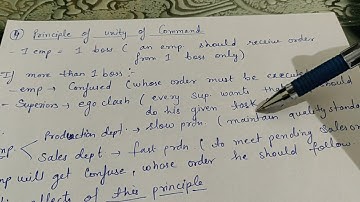 ④ Principle of unity of Command
- 1 emp = 1 boss ( an emp. should receive order
from 1 boss only)
If more than 1 boss :-
- emp → Confused (whose order must be executed
- Superiors → ego clash ( every sup. wants that should
do his given task
Production dept. → slow prdn ( maintain quality standa
emp. Sales dept. → fast prdn ( to meet pending sales o
emp will get confuse, whose order he should follow.
effects of this principle